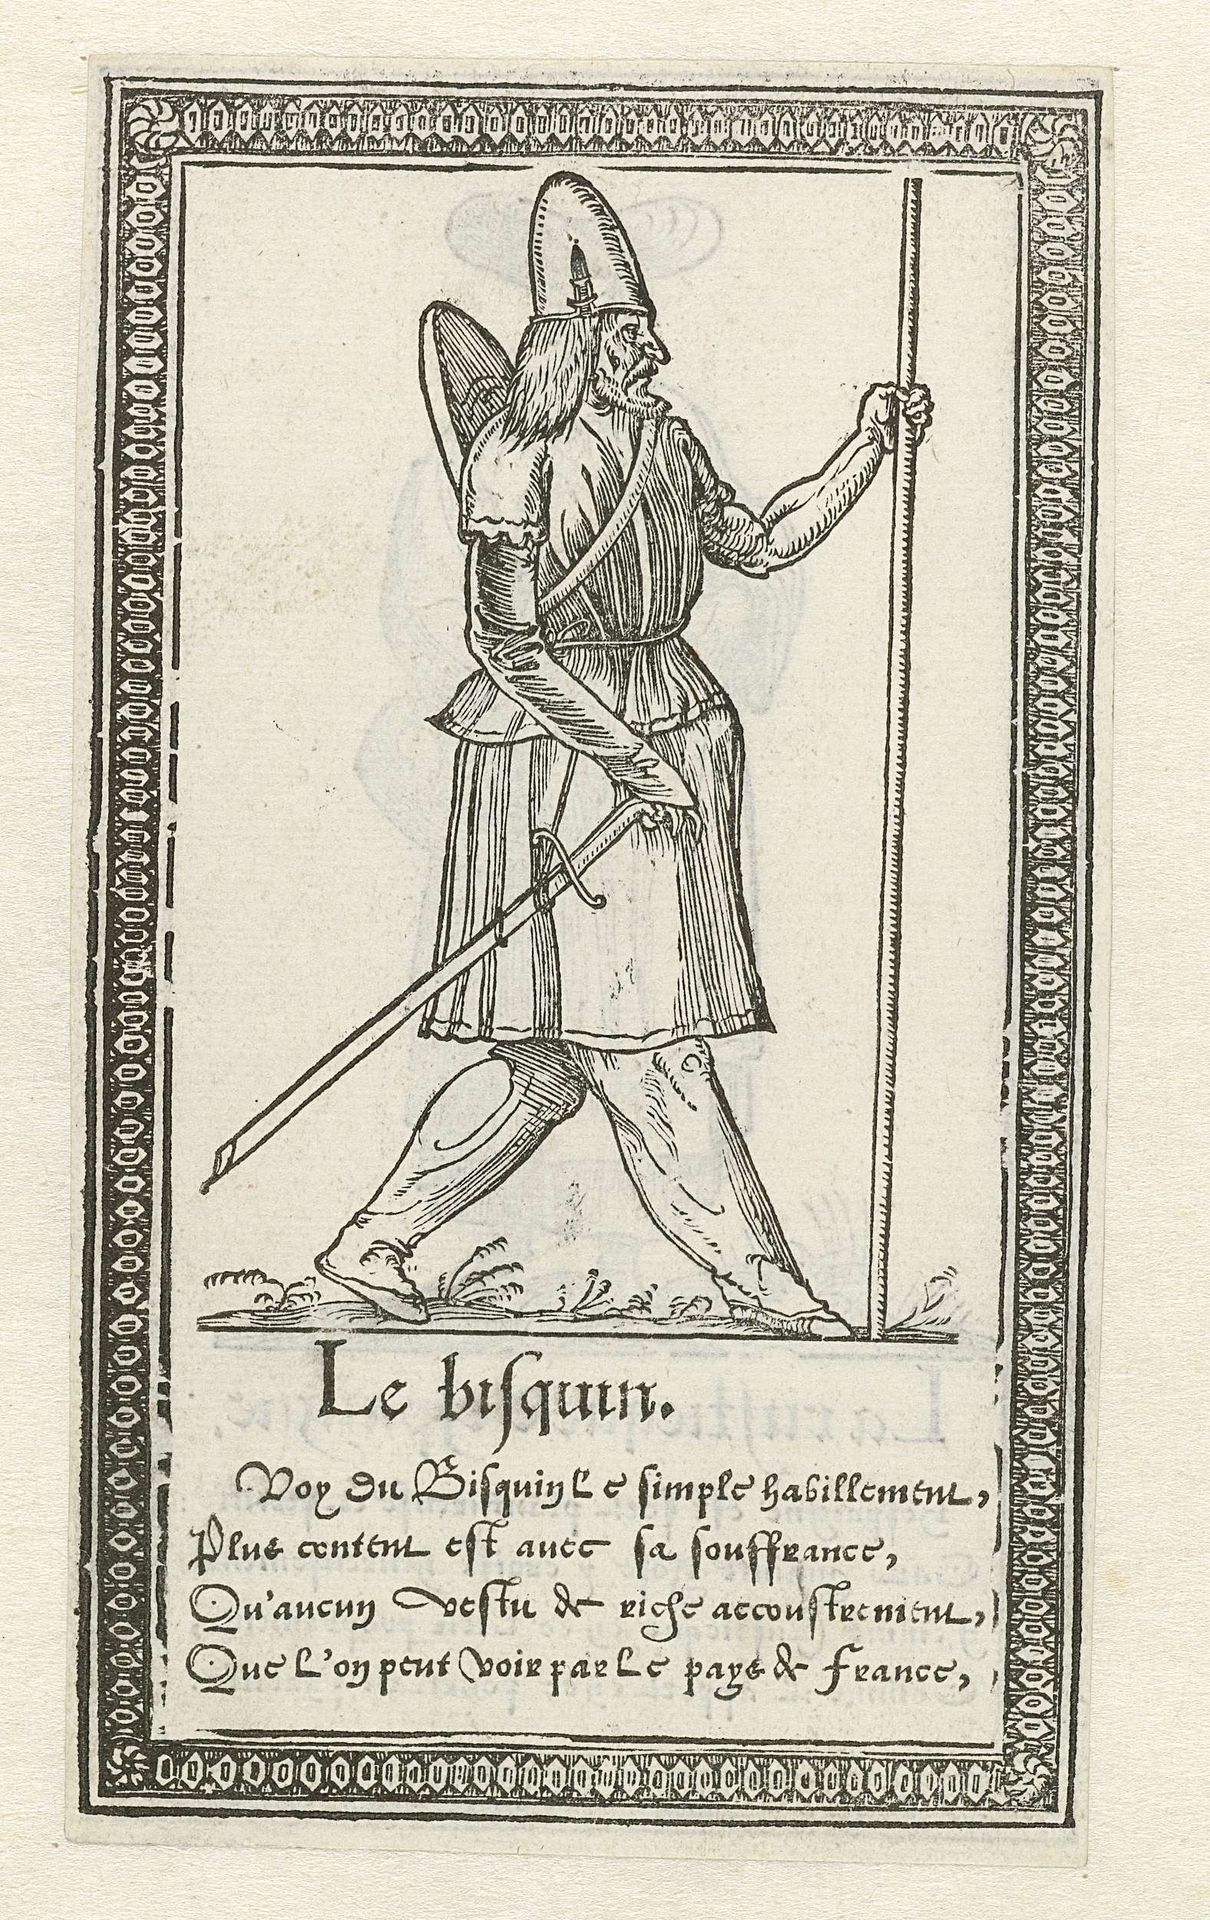 Le bisquin.
Voy du Bisquin le simple habillement,
Plus content est avec sa souffrance,
Qu'aucun vestu de riche accoustrement,
Que l'on peut voir par le pays de france,